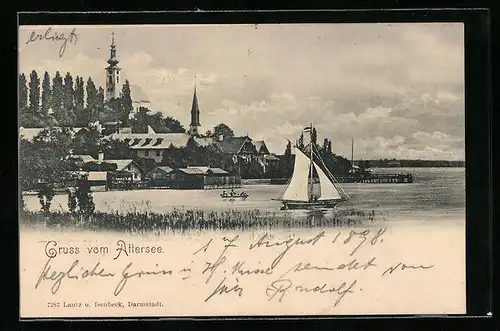 erliegt
Gruss vom Attersee.
17 August 1898.
herzlichen Gruss u. Kuss sendet von
Rudolf.
7287 Lautz u. Isenbeck, Darmstadt.